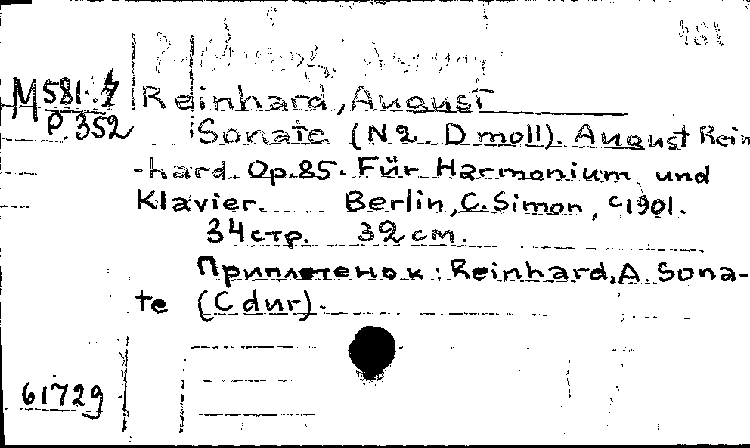 M581.7 Reinhard, August
P.352 Sonate (N 2. D moll). August Rein
-hard. Op.85. Für Harmonium und
Klavier. Berlin, C. Simon, c1901.
34 стр. 32 см.
Приплетено к: Reinhard, A. Sona-
te (C dur).
61729